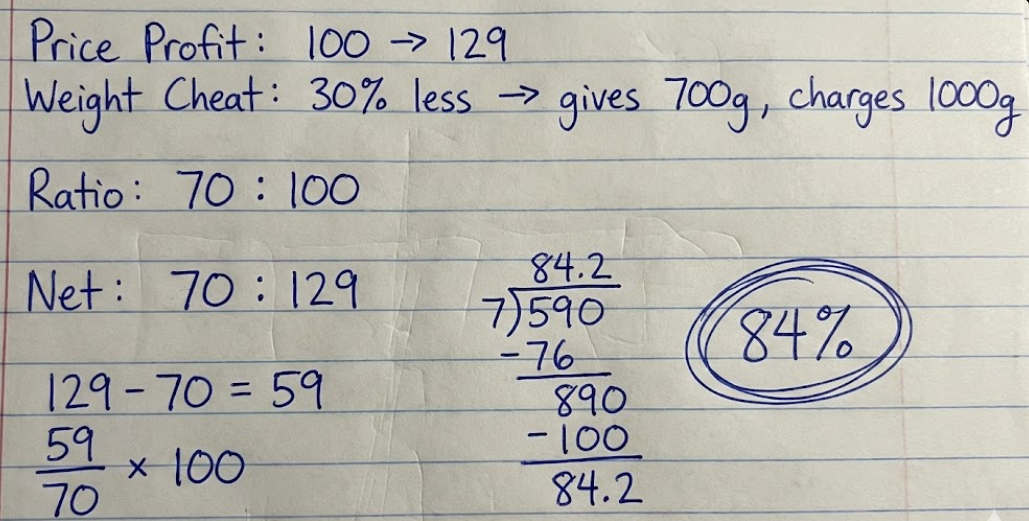 Price Profit: 100 → 129
Weight Cheat: 30% less → gives 700g, charges 1000g
Ratio: 70 : 100
Net: 70 : 129
129 - 70 = 59
59
70
× 100
84.2
7)590
-76
890
-100
84.2
84%